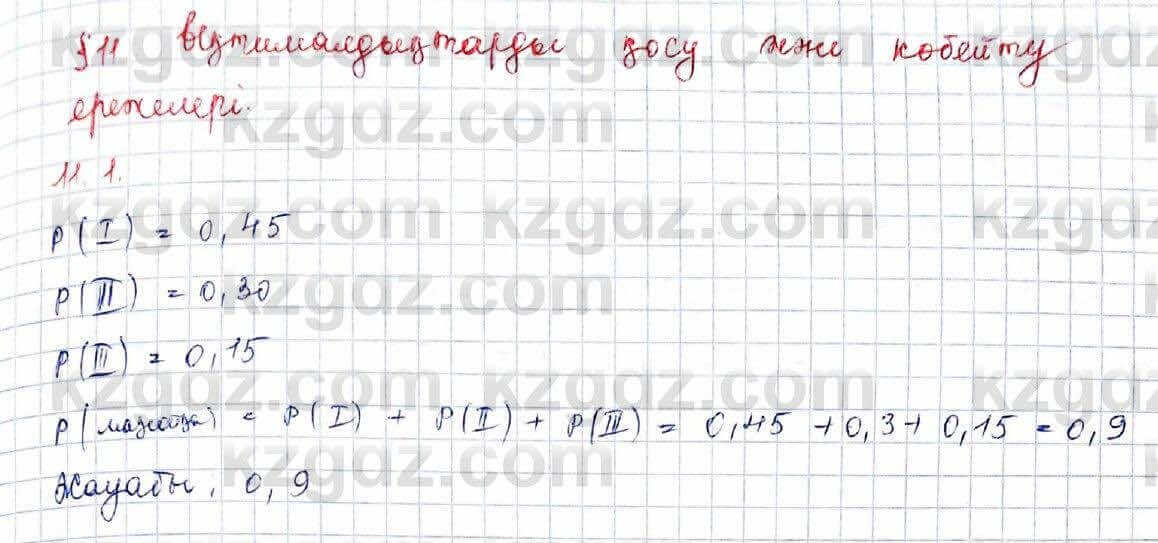 § 11 Ықтималдықтарды қосу және көбейту
ережелері.
11. 1.
P(I) = 0,45
P(II) = 0,30
P(III) = 0,15
P( ) = P(I) + P(II) + P(III) = 0,45 + 0,3 + 0,15 = 0,9
Жауабы. 0,9
kzgdz.com